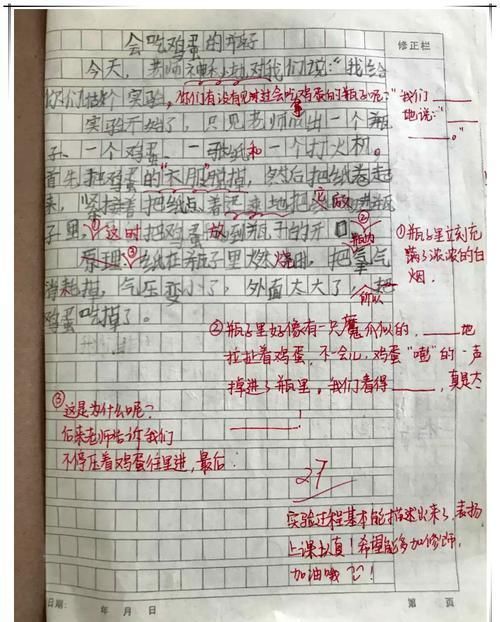 会吃鸡蛋的瓶子
修正栏
今天，老师神秘地对我们说："我给
你们做个实验，你们有没有见过会吃鸡蛋的瓶子呢？"
"我们____
地说：____
____。"
实验开始了，只见老师拿出一个瓶
子、一个鸡蛋、一张纸和一个打火机。
首先把鸡蛋的"衣服"脱掉，然后把纸卷起
来，紧接着把纸点着
子里，①这时把鸡蛋放到瓶子的开口②
原理：③纸在瓶子里燃烧时，把氧气
瓶内
消耗掉，气压变小了，外面太大了
所以
鸡蛋吃掉了。
①瓶子里立刻充
满了浓浓的白
烟。
②瓶子里好像有一只魔爪似的，____地
拉扯着鸡蛋，不一会儿，鸡蛋"嘭"的一声
掉进了瓶里。我们看得____，真是太
____！
③这是为什么呢？
后来老师告诉我们
不停压着鸡蛋往里进，最后：
27
实验过程基本能描述出来了，表扬
上课认真！希望能多加修饰，
加油哦！
日期： 年 月 日
第 页